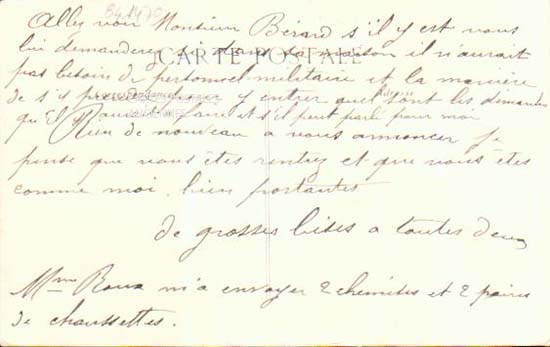 Allez voir Monsieur Bérard s'il y est vous
lui demanderez si dans sa maison il n'aurait
CARTE POSTALE
pas besoin de personnel militaire et la manière
de s'y prendre pour y entrer quel sont les demandes
qu'il faudrait faire et s'il peut parlé pour moi
Rien de nouveau a vous annoncer je
pense que vous êtes rentrez et que vous êtes
comme moi, bien portantes
de grosses bises a toutes deux
Mme Roux m'a envoyer 2 chemises et 2 paires
de chaussettes.